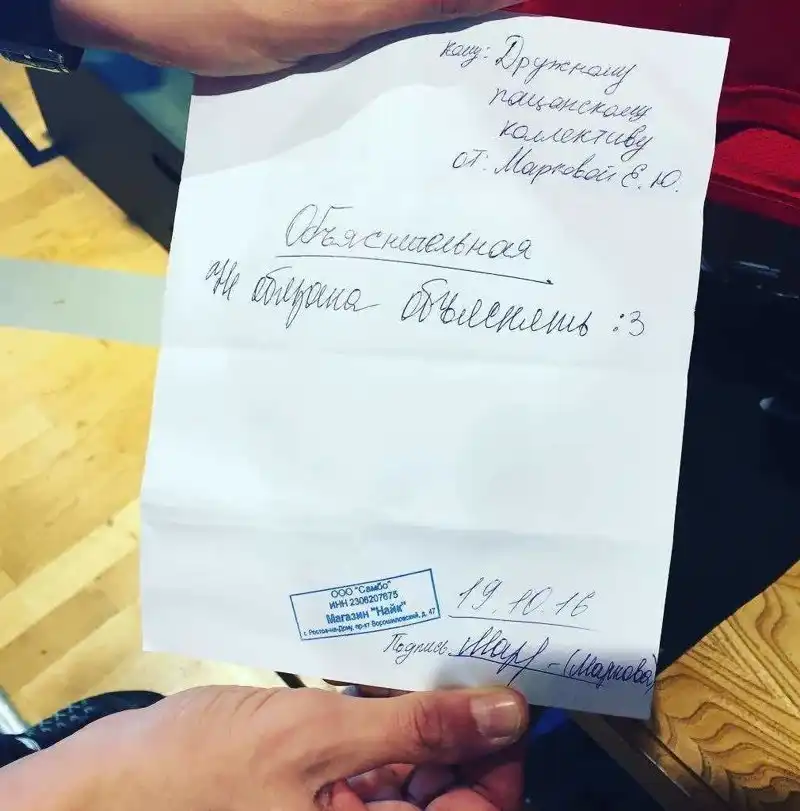 кому: Дружному
пацанскому
коллективу
от: Марковой Е.Ю.
Объяснительная
Не обязана объяснять :3
ООО "Самбо"
ИНН 2306207675
Магазин "Найк"
г. Ростов-на-Дону, пр-кт Ворошиловский, д. 47
19.10.16
Подпись Мар - (Маркова)